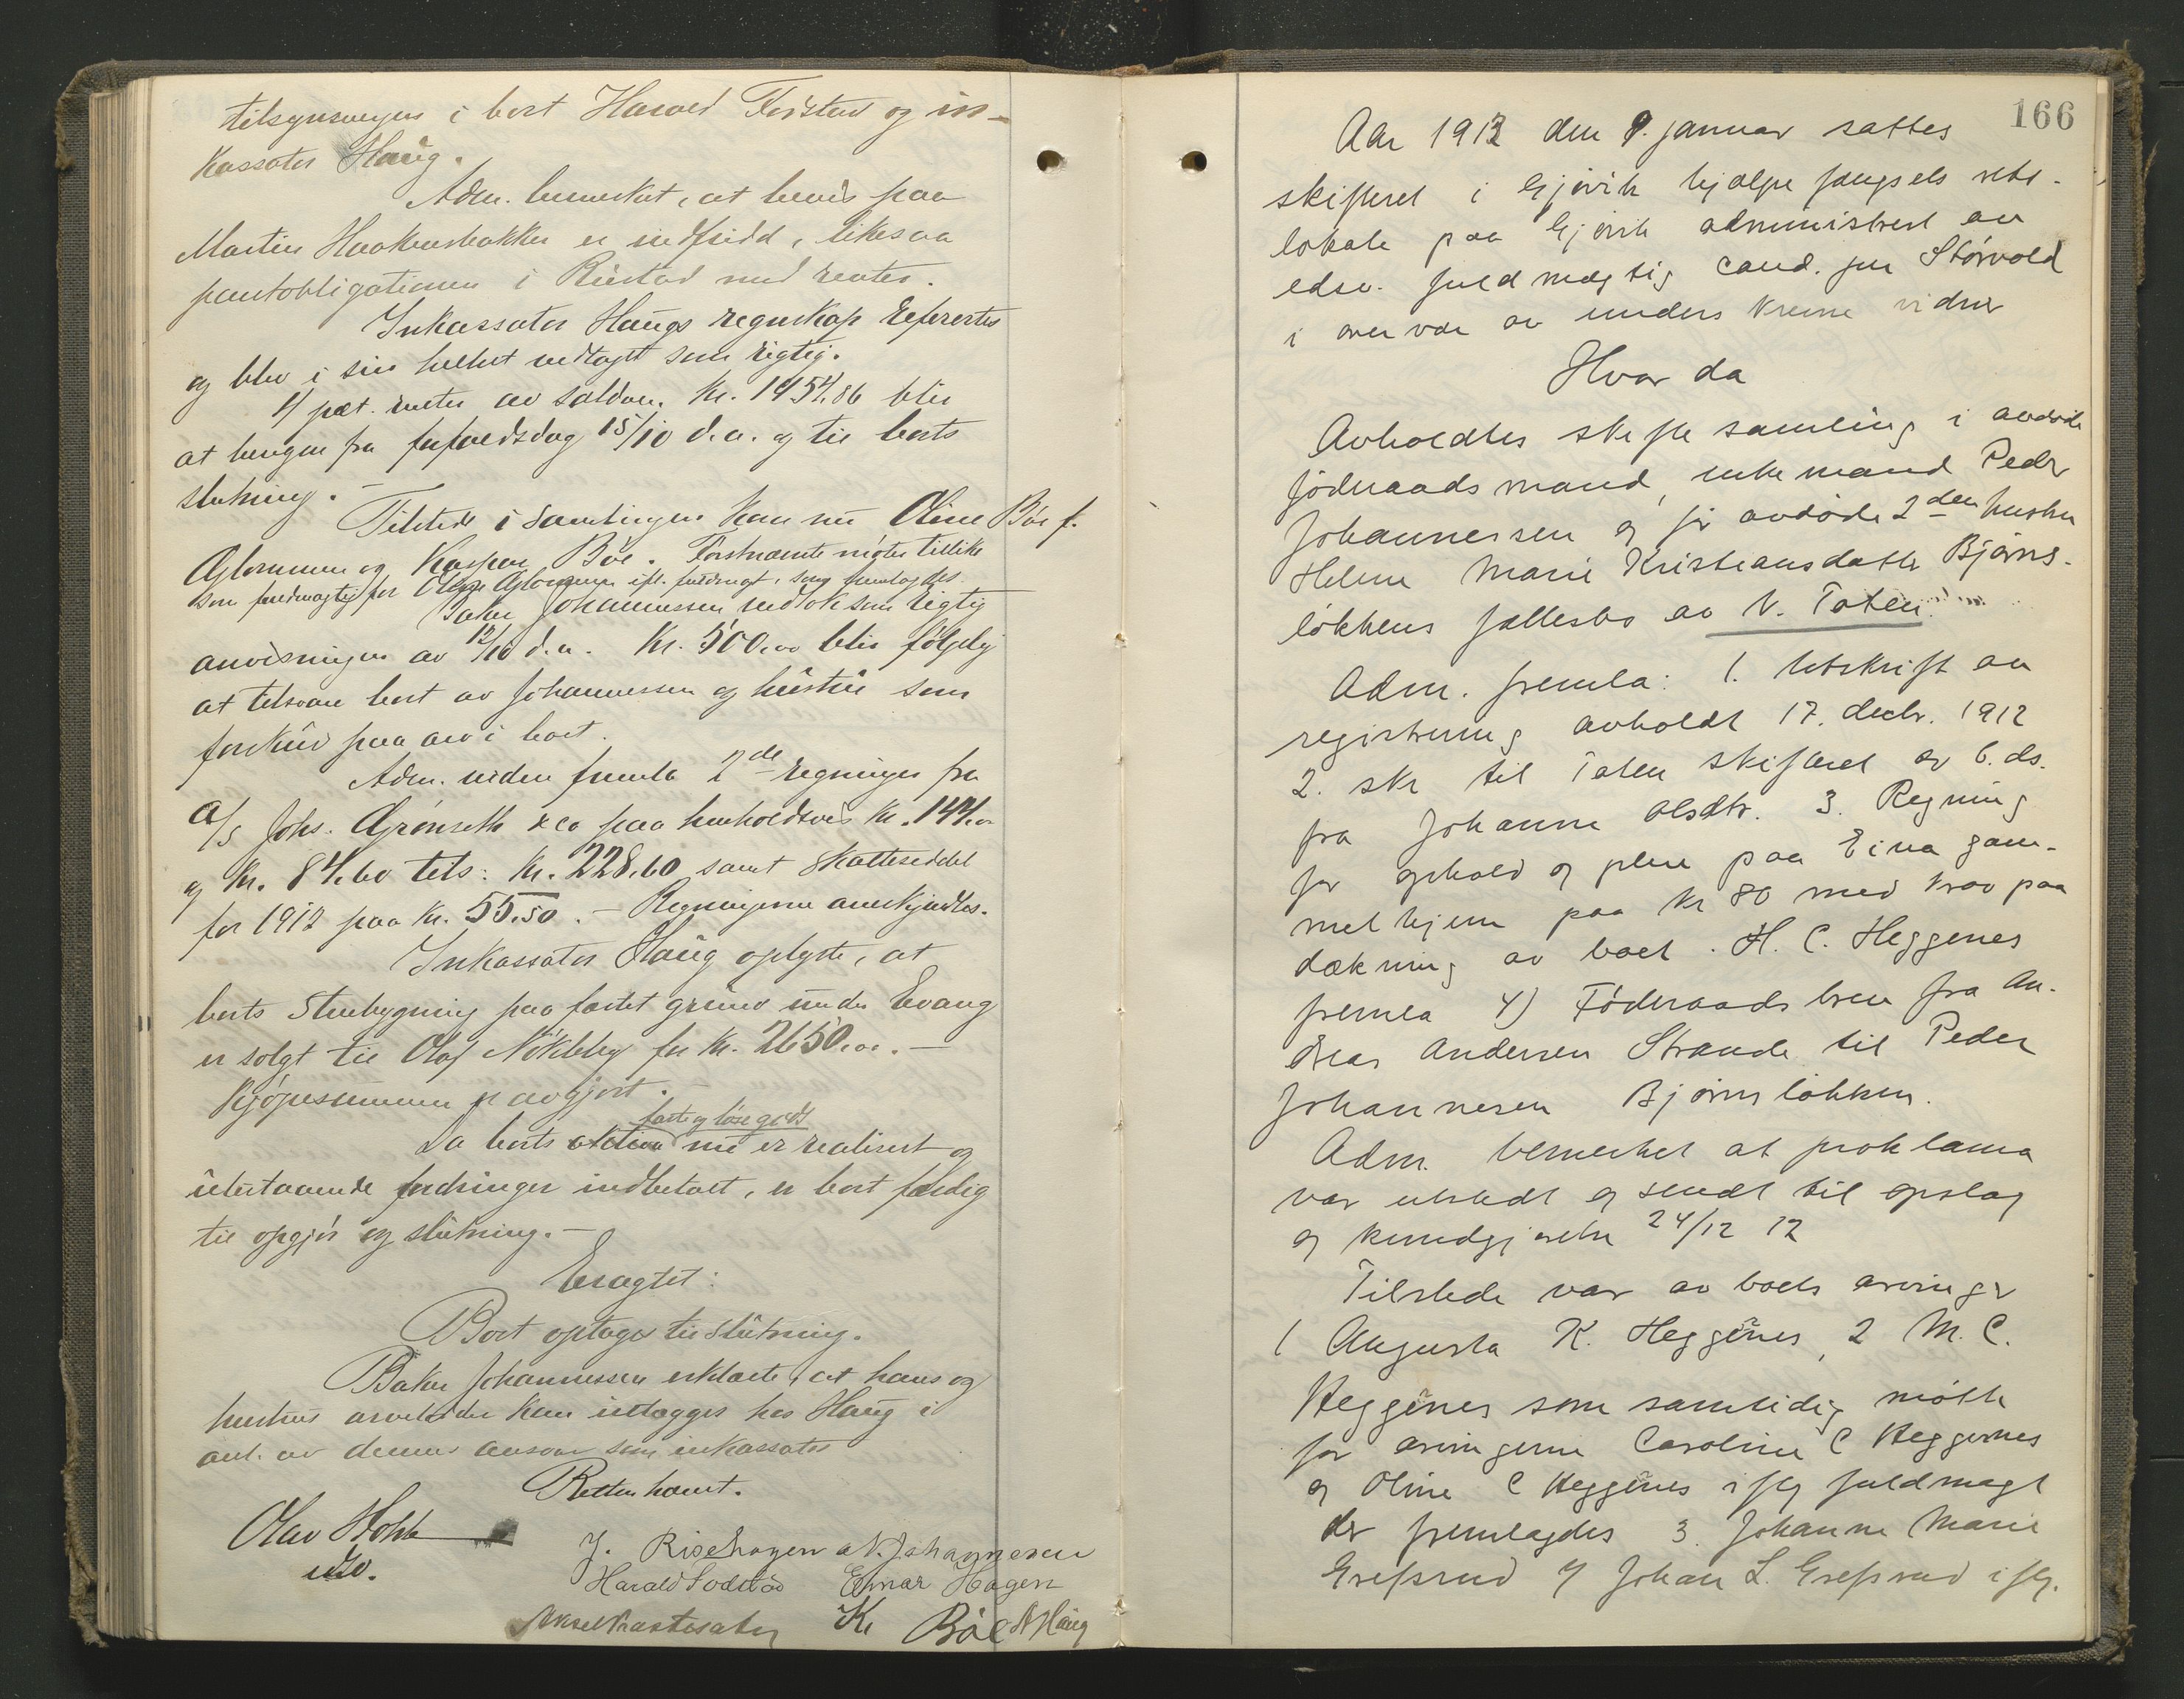 tilsynsmejen i boet Harald Fodstad og in-
kassator Haug.
Adm. bemerket, at bevis paa
Martin Haakenstakken er indfridd, likesaa
pantobligationen i Rustad med renter.
Inkassator Haugs regnskap refrertes
og blev i sin helhet vedtagt som rigtig.
4 pct. renter av saldoen Kr. 1454.86 blir
at beregne fra forfaldsdag 15/10 d.a. og til boets
slutning. -
Tilstede i samlingen kom nu Oline Böe f.
Glommen og Kaspar Böe. Förstnævnte möter tillike
som fuldmægtig for Glommen ifl. fuldmagt, som fremlagdes.
Baker Johannessen vedtok som rigtig
anvisningen av 12/10 d.a. Kr. 500.00 blir følgelig
at tilsvare boet av Johannessen og hustru som
forskud paa arv i boet.
Adm. videre fremla 2de regninger fra
A/S Johs. Grønseth & Co paa henholdsvis Kr. 144.00
og Kr. 84.60 tils: Kr. 228.60 samt skatteseddel
for 1912 paa Kr. 55.50. - Regningerne anerkjendtes.
Inkassator Haug oplyste, at
boets stuebygning paa fæstet grund under Evang
er solgt til Olaf Nökleby for Kr. 2650.00. -
Kjöpesummen er avgjort. -
faste og löse gods
Da boets aktiva nu er realisert og
utestaaende fordringer indbetalt, er boet færdig
til opgjör og slutning. -
Eragtet:
Boet optages til slutning.
Baker Johannessen erklærte, at hans og
hustrus arvelodder kan utlægges hos Haug i
anl. av dennes ansvar som inkassator
Retten hævet.
Olav Stokk
edsv.
J. Risehagen N. Johannesen
Harald Fodstad Einar Hagen
K. Böe A Haug
166
Aar 1913 den 9. januar sattes
skifteret i Gjøvik hjælpefængsels rets-
lokale paa Gjøvik administrert av
edsv. fuldmægtig cand. jur Størvold
i overvær av underskrevne vidner
Hvor da
Avholdtes skiftesamling i avdøde
föderaadsmand, enkemand Peder
Johannessen og før avdøde 2den hustru
Helene Marie Kristiansdatter Bjørns-
løkkens fællesbo av V. Toten.
Adm. fremla: 1. Utskrift av
registrering avholdt 17. decbr. 1912
2. skr til Toten skifteret av 6. ds.
fra Johanne Olsdtr. 3. Regning
for ophold og pleie paa Eina gam-
melhjem paa kr 80 med krav paa
dækning av boet. H. C. Heggenes
fremla 4) Föderaadsbrev fra An-
dreas Andersen Strande til Peder
Johannesen Bjørnsløkken.
Adm. bemerket at proklama
var utstedt og sendt til opslag
og kundgjørelse 24/12 12
Tilstede var av boets arvinger
1 Augusta K. Heggenes, 2 M. C.
Heggenes som samtidig møtte
for arvingerne Caroline C Heggenes
og Oline C Heggenes iflg fuldmagt
der fremlagdes 3. Johanne Marie
Grefsrud 4 Johan L. Grefsrud iflg.